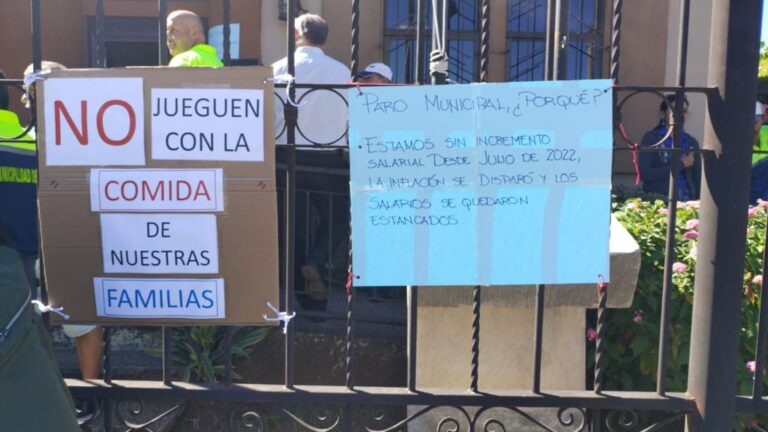 NO
JUEGUEN
CON LA
COMIDA
DE
NUESTRAS
FAMILIAS
PARO MUNICIPAL, ¿PORQUÉ?
• ESTAMOS SIN INCREMENTO
SALARIAL DESDE JULIO DE 2022,
LA INFLACIÓN SE DISPARÓ Y LOS
SALARIOS SE QUEDARON
ESTANCADOS
UNICIPALIDAD DE